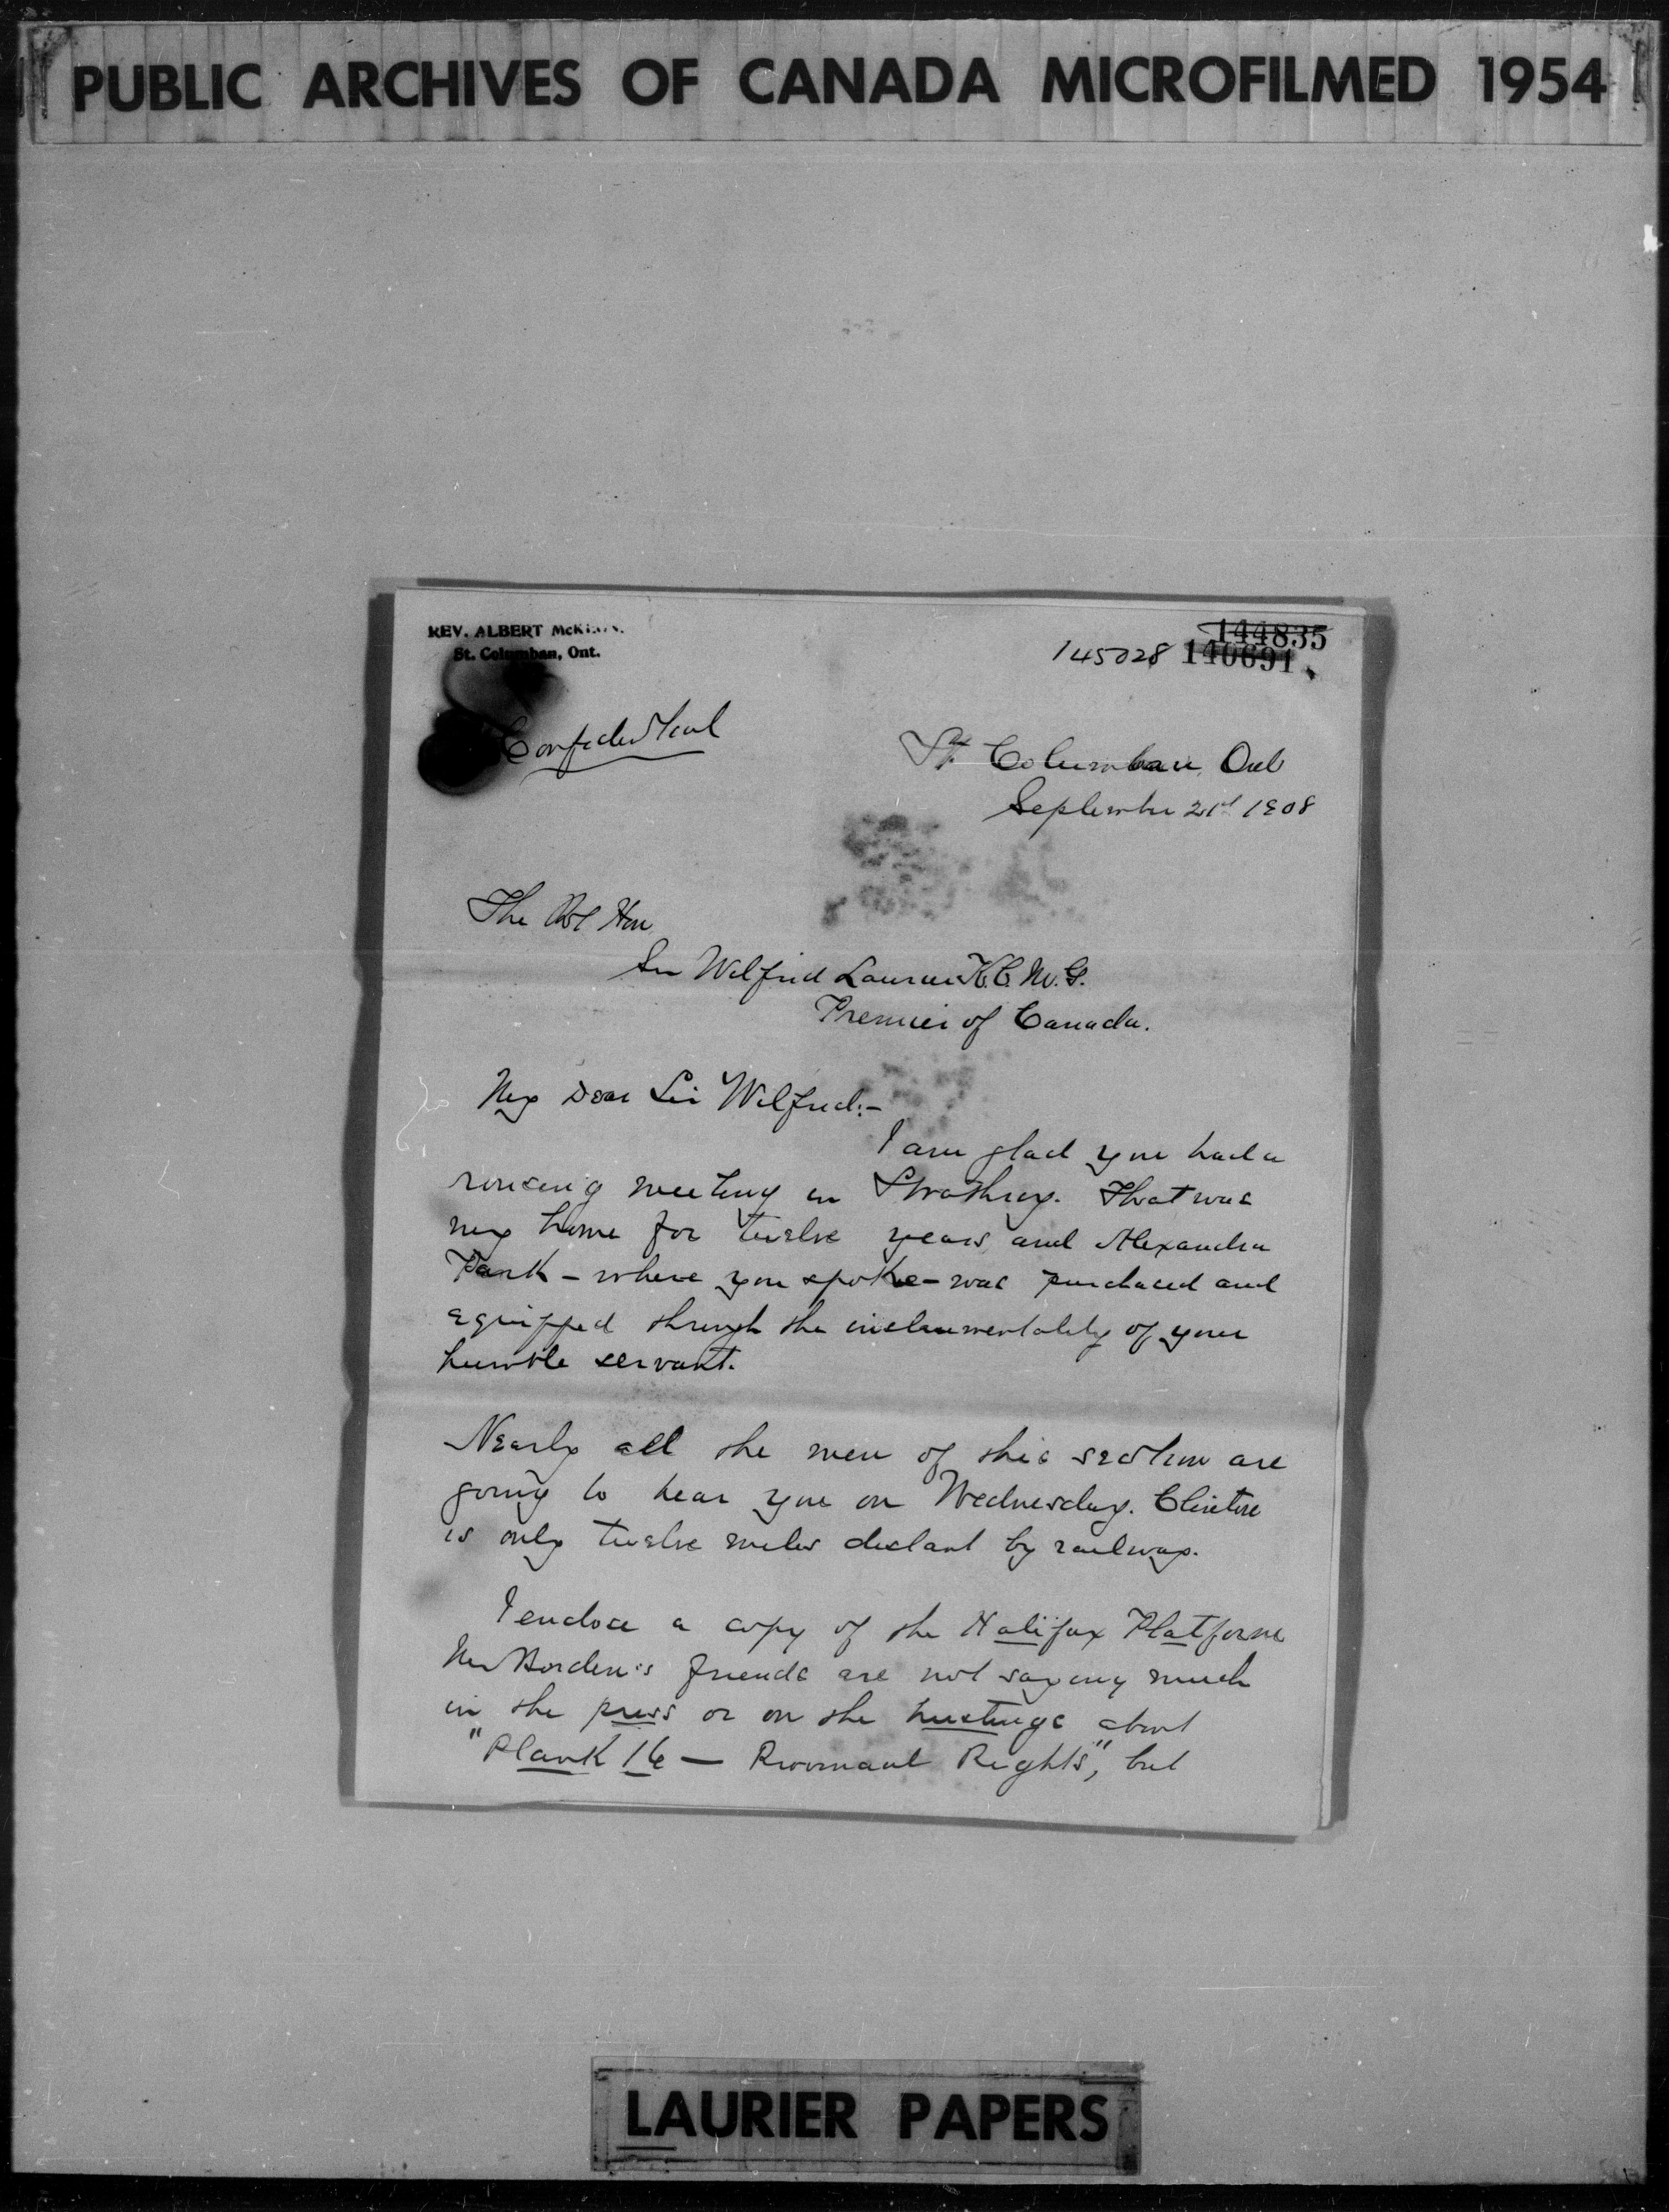 PUBLIC ARCHIVES OF CANADA MICROFILMED 1954
REV. ALBERT McKEON.
St. Columban, Ont.
144835
145028 140691
Confidential
St. Columban, Ont
September 21st 1908
The Rt Hon
Sir Wilfrid Laurier K.C.M.G.
Premier of Canada.
My Dear Sir Wilfrid:-
I am glad you had a
rousing meeting in Strathroy. That was
my home for twelve years and Alexandra
Park - where you spoke - was purchased and
equipped through the instrumentality of your
humble servant.
Nearly all the men of this section are
going to hear you on Wednesday. Clinton
is only twelve miles distant by railway.
I enclose a copy of the Halifax Platform
Mr Borden's friends are not saying much
in the press or on the hustings about
"Plank 16 — Provincial Rights", but
LAURIER PAPERS